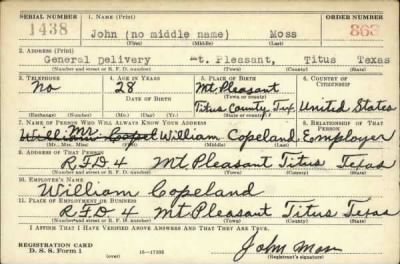 SERIAL NUMBER 1. NAME (Print) ORDER NUMBER
1438 John (no middle name) Moss 868
(First) (Middle) (Last)
2. ADDRESS (Print)
General Delivery Mt. Pleasant, Titus Texas
(Number and street or R. F. D. number) (Town) (County) (State)
3. TELEPHONE 4. AGE IN YEARS 5. PLACE OF BIRTH 6. COUNTRY OF CITIZENSHIP
No 28 Mt Pleasant
DATE OF BIRTH (Town or county)
Titus County Tex. United States
(Exchange) (Number) (Mo.) (Day) (Yr.) (State or country)
7. NAME OF PERSON WHO WILL ALWAYS KNOW YOUR ADDRESS 8. RELATIONSHIP OF THAT PERSON
Mr William Copeland Employer
(Mr., Mrs., Miss) (First) (Middle) (Last)
9. ADDRESS OF THAT PERSON
R.F.D 4 Mt Pleasant Titus Texas
(Number and street or R. F. D. number) (Town) (County) (State)
10. EMPLOYER'S NAME
William Copeland
11. PLACE OF EMPLOYMENT OR BUSINESS
R.F.D 4 Mt Pleasant Titus Texas
(Number and street or R. F. D. number) (Town) (County) (State)
I AFFIRM THAT I HAVE VERIFIED ABOVE ANSWERS AND THAT THEY ARE TRUE.
REGISTRATION CARD
D. S. S. Form 1 (over) 16-17105 John Moss
(Registrant's signature)